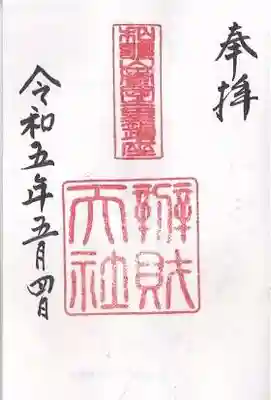 奉拝
辨財
天社
令和五年五月四日